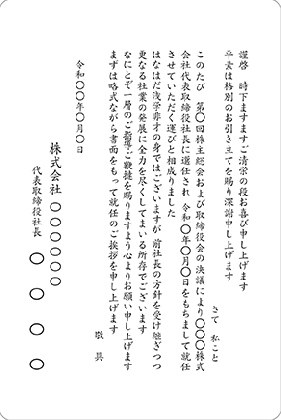 謹啓　時下ますますご清栄の段お喜び申し上げます
平素は格別のお引き立てを賜り深謝申し上げます
さて　私こと
このたび　第〇回株主総会および取締役会の決議により〇〇〇株式
会社代表取締役社長に選任され　令和〇年〇月〇日をもちまして就任
させていただく運びと相成りました
はなはだ浅学非才の身ではございますが　前社長の方針を受け継ぎつつ
更なる社業の発展に全力を尽くしてまいる所存でございます
なにとぞ一層のご指導ご鞭撻を賜りますよう心よりお願い申し上げます
まずは略式ながら書面をもって就任のご挨拶を申し上げます
敬具
令和〇〇年〇月〇日
株式会社　〇〇〇〇〇〇
代表取締役社長　〇　〇　〇　〇